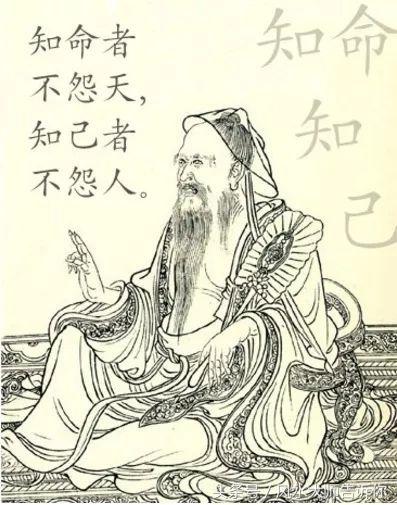 知命者
不怨天，
知己者
不怨人。
知命
知
己
头条号／风水大师告诉你